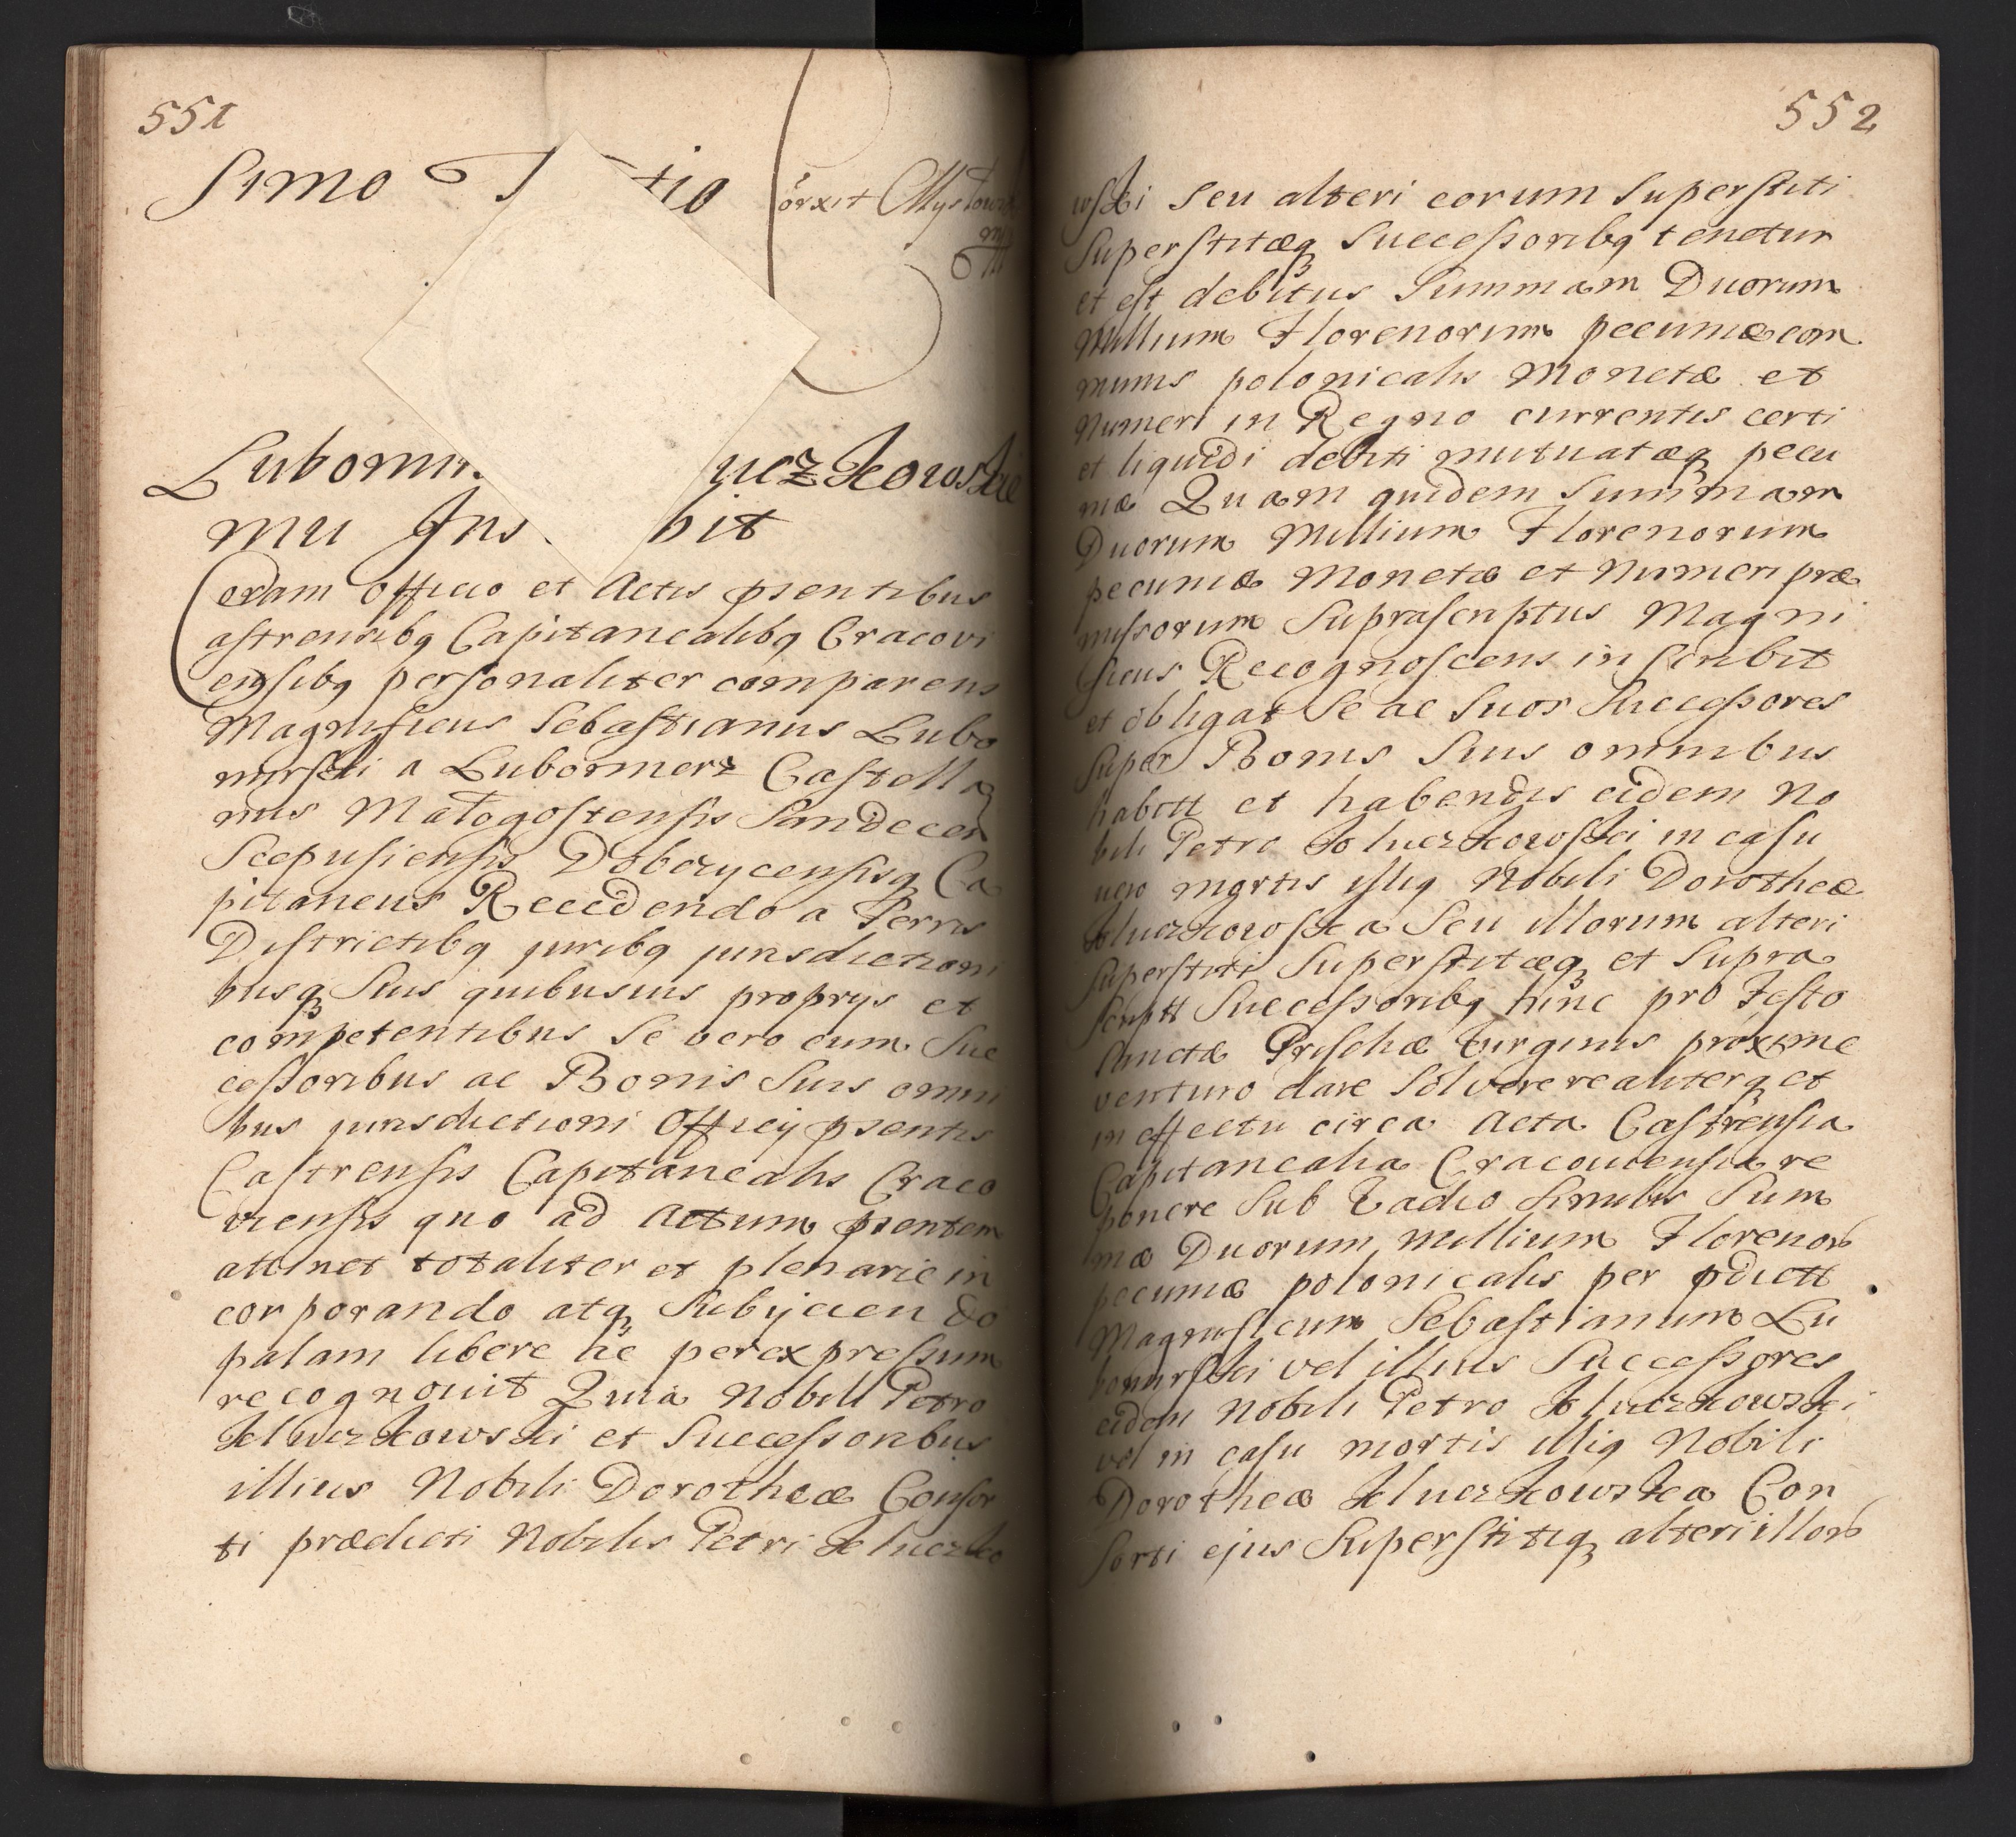 551
simo T tio
orxit Mysłow
mp
Lubomir. uczkowskie
mu Ins. bit
Coram Officio et Actis psentibus
Castrensibq Capitanealibq Cracovi
ensibq personaliter comparens
Magnificus Sebastianus Lubo
mirski a Lubomierz Castella
nus Małogostensis Sandecen
Scepusiensis Dobczycensisq Ca
pitaneus Recedendo a Terris
Districtibq juribq jurisdictioni
busq suis quibusuis proprijs et
competentibus Se vero cum Suc
cessoribus ac Bonis Suis omni
bus jurisdictioni Officij psentis
Castrensis Capitanealis Craco
viensis quo ad Actum psentem
attinet totaliter et plenarie in
corporando atq Subijcien do
palam libere ac per expressum
recognouit Quia Nobili Petro
Kluczkowski et Successoribus
illius Nobili Dorotheæ Consor
ti prædicti Nobilis Petri Kluczko
552
wski seu alteri eorum Superstiti
Superstitæq Successoribq tenetur
et est debitus Summam Duorum
Millium Florenorum pecuniæ com
munis polonicalis Monetæ et
Numeri in Regno currentis certi
et liquidi debiti mutuatæq pecu
niæ Quam quidem Summam
Duorum Millium Florenorum
pecuniæ Monetæ et Numeri præ
missorum Suprascriptus Magni
ficus Recognoscens inscribit
et obligat Se ac Suos Successores
Super Bonis Suis omnibus
habitt et habendis eidem No
bili Petro Kluczkowski in casu
vero mortis illiq Nobili Dorotheæ
Kluczkowska Seu illorum alteri
Superstiti Superstitæq et Supra
scriptt Successoribq hinc pro Festo
Sanctæ Prischæ Virginis proxime
venturo dare Solvere realiterq et
in effectu circa Acta Castrensia
Capitanealia Cracouiensia re
ponere Sub Vadio Similis Sum
mæ Duorum Millium Floreno℞
pecuniæ polonicalis per pdictt
Magnificum Sebastianum Lu
bomirski vel illius Successores
eidem Nobili Petro Kluczkowski
vel in casu mortis illiq Nobili
Dorotheæ Kluczkowska Con
sorti ejus Superstitiq alteri illo℞